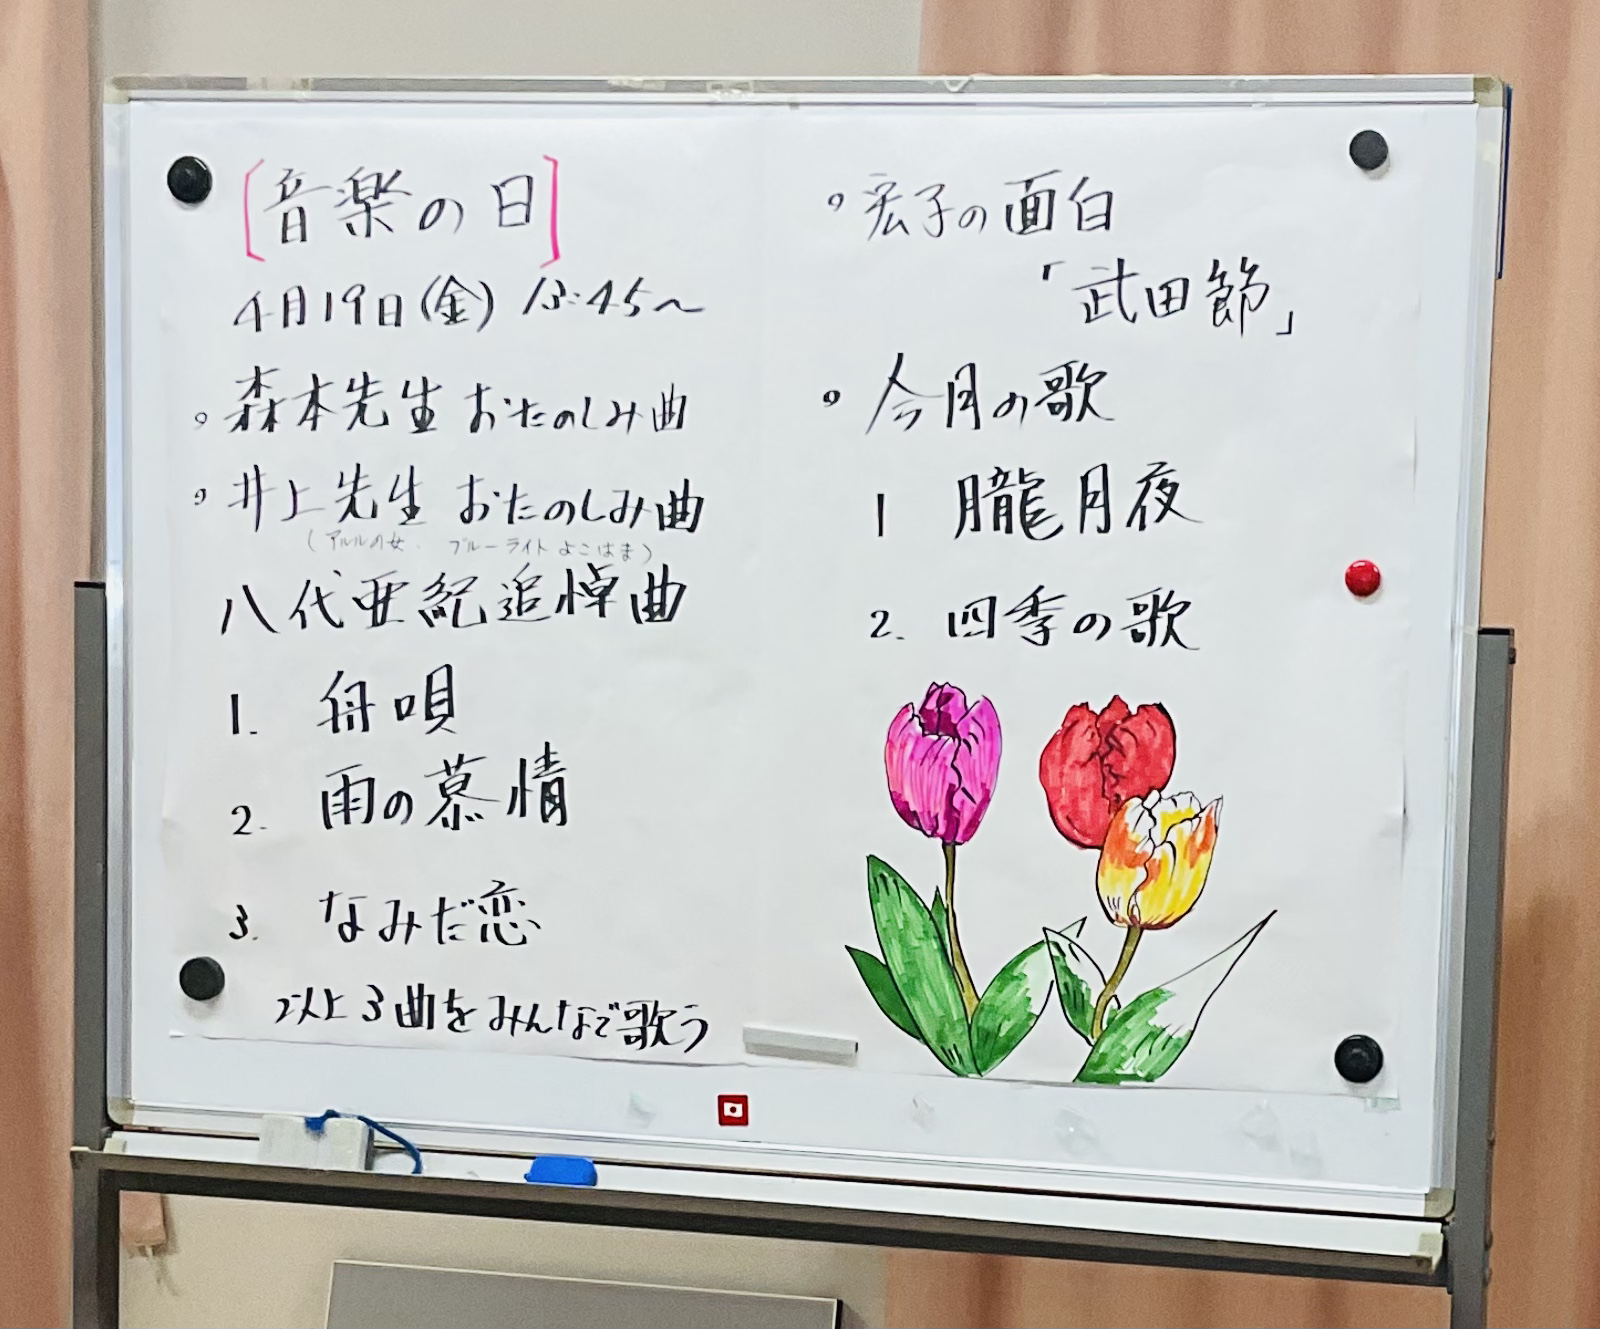 [音楽の日]
4月19日(金) 13:45〜
。森本先生 おたのしみ曲
。井上先生 おたのしみ曲
(アルルの女. ブルーライト よこはま)
八代亜紀追悼曲
1. 舟唄
2. 雨の慕情
3. なみだ恋
以上3曲をみんなで歌う
。宏子の面白
「武田節」
。今月の歌
1 朧月夜
2. 四季の歌